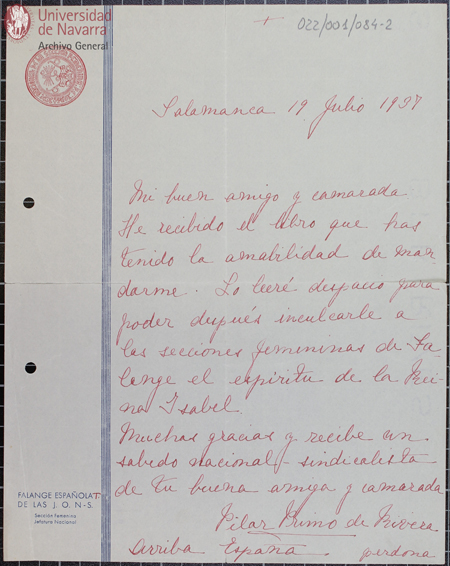 Universidad
de Navarra
Archivo General
022/001/084-2
Salamanca 19 Julio 1937
Mi buen amigo y camarada
He recibido el libro que has
tenido la amabilidad de man
darme. Lo leeré despacio para
poder después inculcarle a
las secciones femeninas de Fa-
lange el espiritu de la Rei
na Isabel.
Muchas gracias y recibe un
saludo nacional-sindicalista
de tu buena amiga y camarada
Pilar Primo de Rivera
Arriba España
perdona
FALANGE ESPAÑOLA T
DE LAS J. O. N-S.
Sección Femenina
Jefatura Nacional